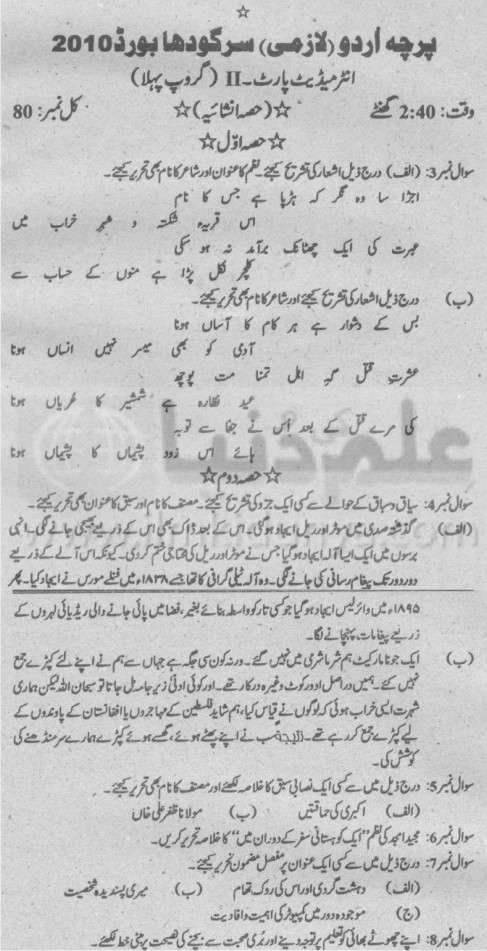 پرچہ اُردو (لازمی) سرگودھا بورڈ 2010
انٹرمیڈیٹ پارٹ۔ II (گروپ پہلا)
وقت: 2:40 گھنٹے ☆(حصہ انشائیہ)☆ کل نمبر: 80
☆حصہ اوّل☆
سوال نمبر 3: (الف) درج ذیل اشعار کی تشریح کیجئے۔ نظم کا عنوان اور شاعر کا نام بھی تحریر کیجئے۔
اجڑا سا وہ نگر کہ ہڑپا ہے جس کا نام
اس قریۂ شکستہ و شہرِ خراب میں
عبرت کی ایک چھٹانک برآمد نہ ہو سکی
کلچر نکل پڑا ہے منوں کے حساب سے
(ب) درج ذیل اشعار کی تشریح کیجئے اور شاعر کا نام بھی تحریر کیجئے۔
بس کہ دشوار ہے ہر کام کا آساں ہونا
آدمی کو بھی میسر نہیں انساں ہونا
عشرتِ قتل گہِ اہل تمنا مت پوچھ
عید نظارہ ہے شمشیر کا عریاں ہونا
کی مرے قتل کے بعد اُس نے جفا سے توبہ
ہائے اس زود پشیماں کا پشیماں ہونا
علم دُنیا
☆حصہ دوم☆
سوال نمبر 4: سیاق و سباق کے حوالے سے کسی ایک جزو کی تشریح کیجئے۔ مصنف کا نام اور سبق کا عنوان بھی تحریر کیجئے۔
(الف) گذشتہ صدی میں موٹر اور ریل ایجاد ہو گئی۔ اس کے بعد ڈاک بھی اس کے ذریعے بھیجی جانے لگی۔ انہی
برسوں میں ایک ایسا آلہ ایجاد ہو گیا جس نے موٹر اور ریل کی محتاجی ختم کر دی۔ کیونکہ اس آلے کے ذریعے
دور دور تک پیغام رسانی کی جانے لگی۔ وہ آلہ ٹیلی گرافی کا تھا جسے ۱۸۳۸ء میں مورس نے ایجاد کیا۔ پھر
۱۸۹۵ء میں وائرلیس ایجاد ہو گیا جو کسی تار کو واسطہ بنائے بغیر، فضا میں پائی جانے والی ریڈیائی لہروں کے
ذریعے پیغامات پہنچانے لگا۔
(ب) ایک جونا مارکیٹ ہم شرما شرمی میں نہیں گئے۔ ورنہ کون سی جگہ ہے جہاں سے ہم نے اپنے لئے کپڑے جمع
نہیں کئے۔ ہمیں دراصل اوورکوٹ وغیرہ درکار تھے۔ اور کوئی اونی زیر جامہ مل جاتا تو سبحان اللہ لیکن ہماری
شہرت ایسی خراب ہوئی کہ لوگوں نے قیاس کیا، ہم شاید فلسطین کے مہاجروں یا افغانستان کے پاوندوں کے
لیے کپڑے جمع کر رہے تھے۔ نتیجۃً سب نے اپنے پھٹے ہوئے، گھسے ہوئے کپڑے ہمارے سر منڈھنے کی
کوشش کی۔
سوال نمبر 5: درج ذیل میں سے کسی ایک نصابی سبق کا خلاصہ لکھئے اور مصنف کا نام بھی تحریر کیجئے۔
(الف) اکبری کی حماقتیں (ب) مولانا ظفر علی خاں
سوال نمبر 6: مجید امجد کی نظم "ایک کوہستانی سفر کے دوران میں" کا خلاصہ تحریر کریں۔
سوال نمبر 7: درج ذیل میں سے کسی ایک عنوان پر مفصل مضمون تحریر کیجئے۔
(الف) دہشت گردی اور اس کی روک تھام (ب) میری پسندیدہ شخصیت
(ج) موجودہ دور میں کمپیوٹر کی اہمیت و افادیت
سوال نمبر 8: اپنے چھوٹے بھائی کو تعلیم پر توجہ دینے اور بُری صحبت سے بچنے کی نصیحت پر مبنی خط لکھئے۔